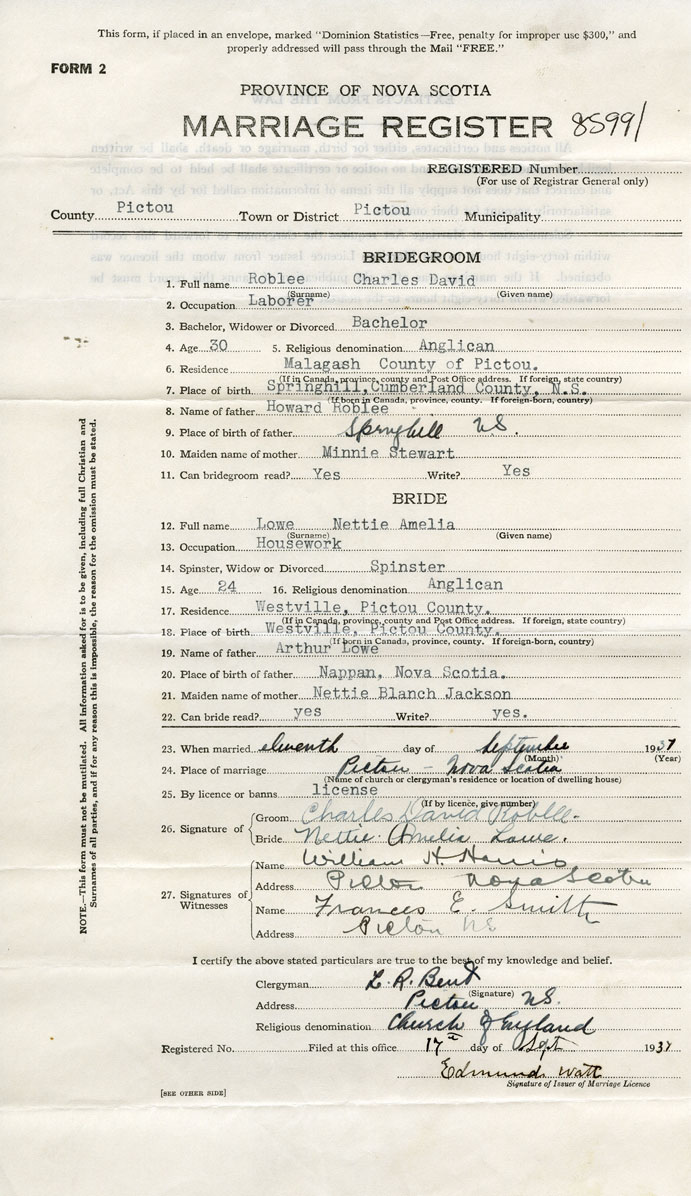 This form, if placed in an envelope, marked "Dominion Statistics—Free, penalty for improper use $300," and
properly addressed will pass through the Mail "FREE."
FORM 2
PROVINCE OF NOVA SCOTIA
MARRIAGE REGISTER 85991
REGISTERED Number
(For use of Registrar General only)
County Pictou Town or District Pictou Municipality
BRIDEGROOM
1. Full name Roblee Charles David
(Surname) (Given name)
2. Occupation Laborer
3. Bachelor, Widower or Divorced Bachelor
4. Age 30 5. Religious denomination Anglican
6. Residence Malagash County of Pictou.
(If in Canada, province, county and Post Office address. If foreign, state country)
7. Place of birth Springhill,Cumberland County, N.S.
(If born in Canada, province, county. If foreign-born, country)
8. Name of father Howard Roblee
9. Place of birth of father Springhill N.S.
10. Maiden name of mother Minnie Stewart
11. Can bridegroom read? Yes Write? Yes
BRIDE
12. Full name Lowe Nettie Amelia
(Surname) (Given name)
13. Occupation Housework
14. Spinster, Widow or Divorced Spinster
15. Age 24 16. Religious denomination Anglican
17. Residence Westville, Pictou County.
(If in Canada, province, county and Post Office address. If foreign, state country)
18. Place of birth Westville, Pictou County.
(If born in Canada, province, county. If foreign-born, country)
19. Name of father Arthur Lowe
20. Place of birth of father Nappan, Nova Scotia.
21. Maiden name of mother Nettie Blanch Jackson
22. Can bride read? yes Write? yes.
23. When married eleventh day of September 1937
(Month) (Year)
24. Place of marriage Pictou - Nova Scotia
(Name of church or clergyman's residence or location of dwelling house)
25. By licence or banns license
(If by licence, give number)
26. Signature of Groom Charles David Roblee.
Bride Nettie Amelia Lowe.
27. Signatures of Witnesses Name William H. Harris
Address Pictou Nova Scotia
Name Frances E. Smith
Address Pictou NS
I certify the above stated particulars are true to the best of my knowledge and belief.
Clergyman L. R. Bent
(Signature)
Address Pictou N.S.
Religious denomination Church of England
Registered No. Filed at this office 17th day of Sept 1937
Edmund Watt
Signature of Issuer of Marriage Licence
[SEE OTHER SIDE]
NOTE.—This form must not be mutilated. All information asked for is to be given, including full Christian and
Surnames of all parties, and if for any reason this is impossible, the reason for the omission must be stated.